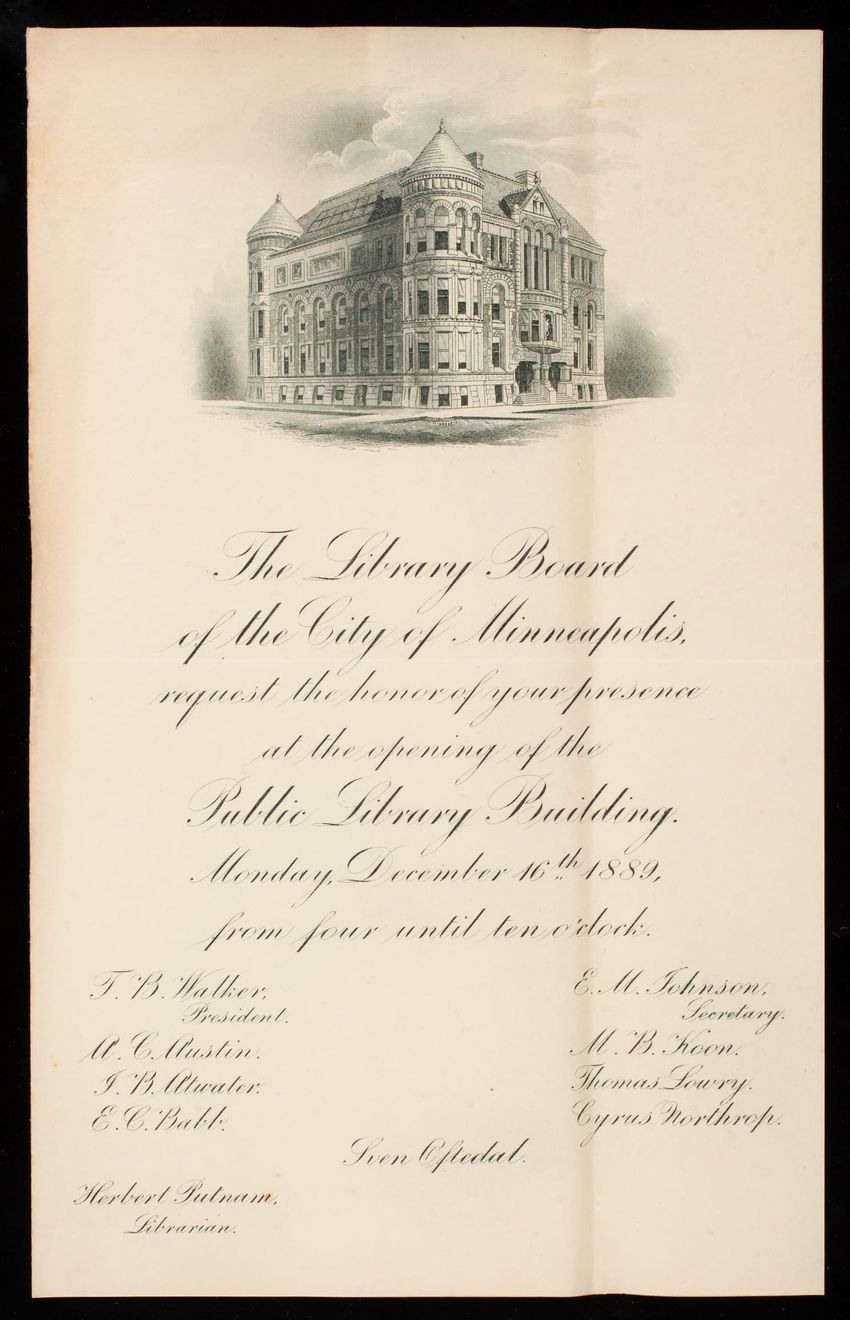 The Library Board
of the City of Minneapolis,
request the honor of your presence
at the opening of the
Public Library Building.
Monday, December 16th 1889,
from four until ten o'clock.
T. B. Walker,
President.
A. C. Austin.
J. B. Atwater.
E. C. Babb.
E. M. Johnson,
Secretary.
M. B. Koon.
Thomas Lowry.
Cyrus Northrop.
Sven Oftedal.
Herbert Putnam,
Librarian.